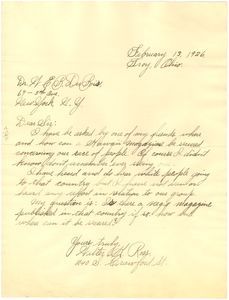 February 13, 1926
Troy Ohio.
Dr. W. E. B. Du Bois
69 - 5th Ave.
New York N. Y
Dear Sir:
I have be asked by one of my friends where
and how can a Hawaii magazine be secured
concerning our race of people. Of course I didn't
know,
I have heard and do has white people going
to that country but I have not
based any report in relation to our group.
My question is: Is there a negro magazine
published in that country if so: how and
where can it be secured?
Yours truly,
Walter Ross
1200 S. Crawford St.